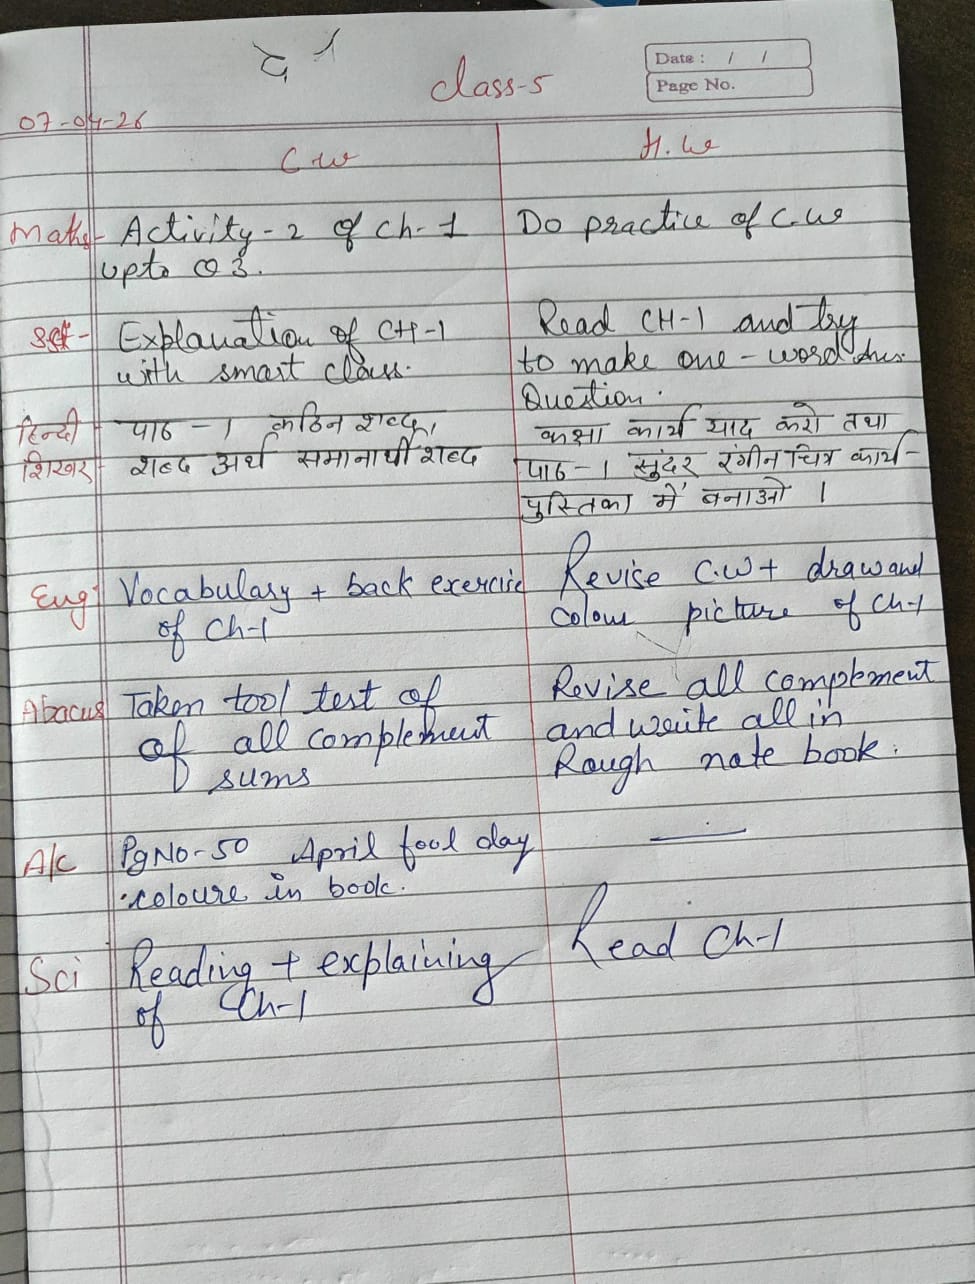 class-5
Date : / /
Page No.
07-04-26
C.w
H.w
Maths- Activity-2 of Ch-1
upto Q 3.
Do practice of C.w
SSt- Explanation of CH-1
with smart class.
Read CH-1 and try
to make one-word Ans.
Question.
हिन्दी पाठ-1 कठिन शब्द,
शिखर शब्द अर्थ समानार्थी शब्द
कक्षा कार्य याद करो तथा
पाठ-1 सुंदर रंगीन चित्र कार्य-
पुस्तिका में बनाओ ।
Eng Vocabulary + back exercise
of Ch-1
Revise C.W+ draw and
colour picture of Ch-1
Abacus Taken tool test of
of all complement
sums
Revise all complement
and write all in
Rough note book.
A/c Pg No-50 April fool day
coloure in book.
Sci Reading + explaining
of Ch-1
Read Ch-1